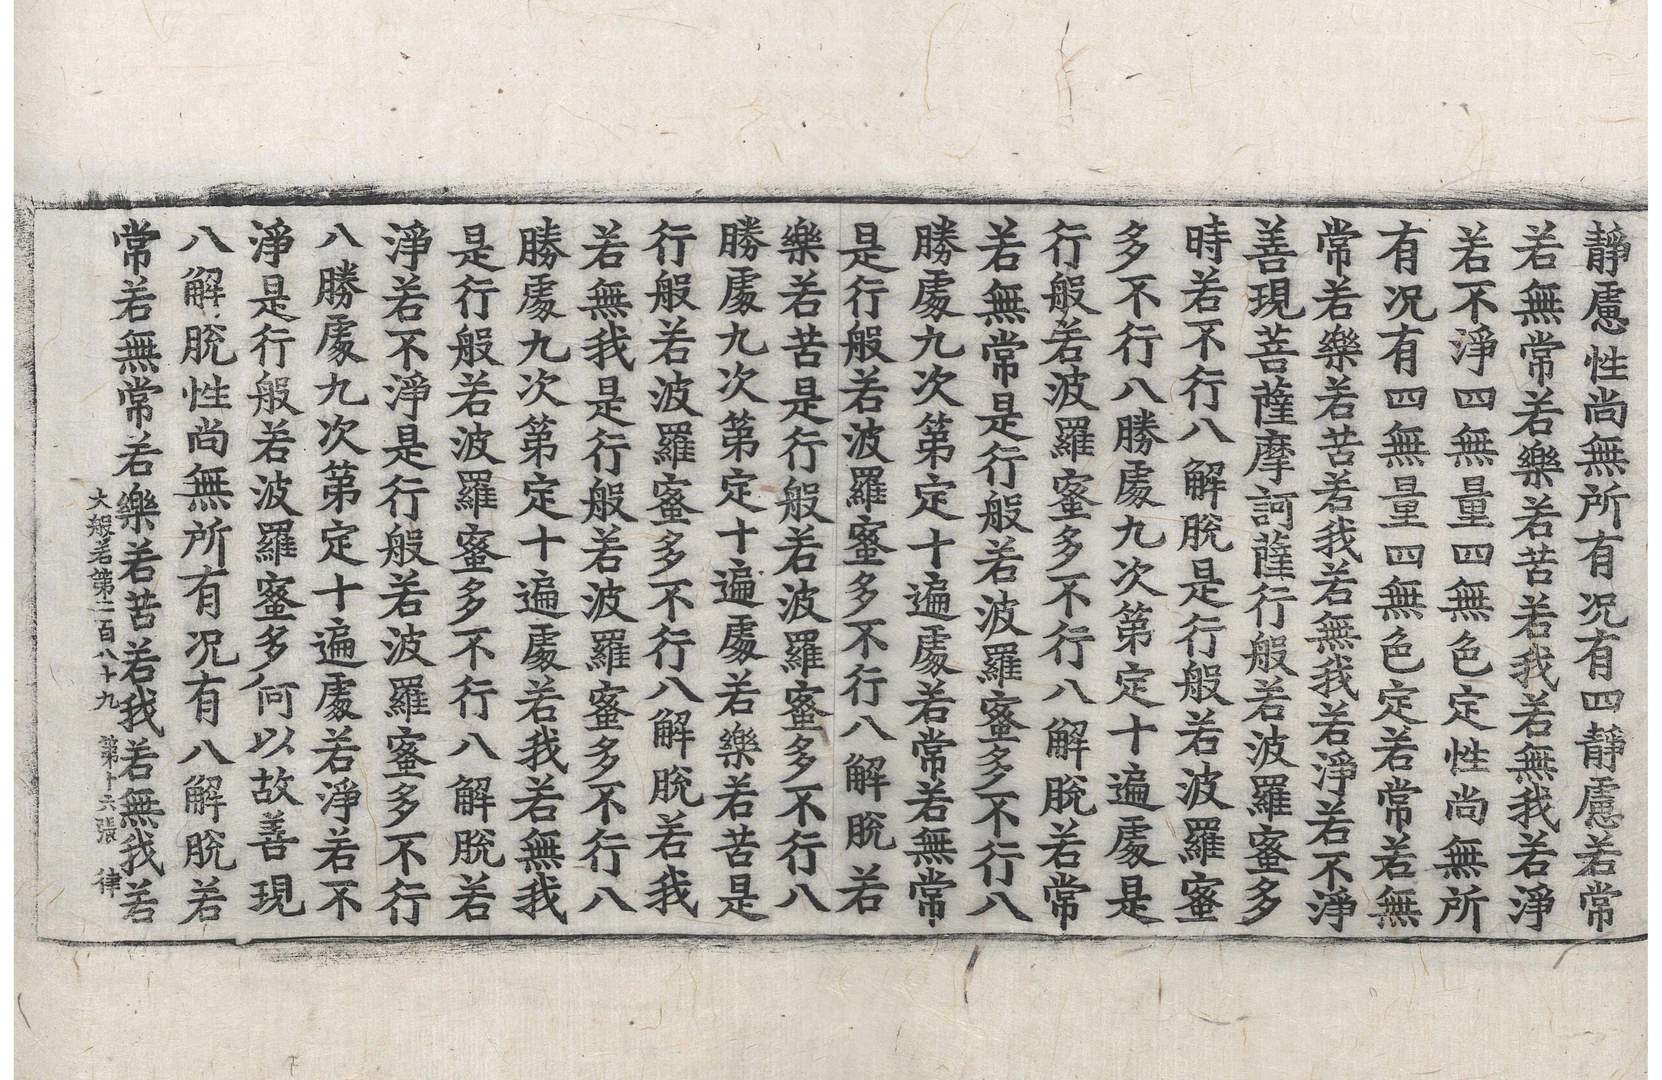 靜慮性尚無所有况有四靜慮若常
若無常若樂若苦若我若無我若淨
若不淨四無量四無色定性尚無所
有况有四無量四無色定若常若無
常若樂若苦若我若無我若淨若不淨
善現菩薩摩訶薩行般若波羅蜜多
時若不行八解脫是行般若波羅蜜
多不行八勝處九次第定十遍處是
行般若波羅蜜多不行八解脫若常
若無常是行般若波羅蜜多不行八
勝處九次第定十遍處若常若無常
是行般若波羅蜜多不行八解脫若
樂若苦是行般若波羅蜜多不行八
勝處九次第定十遍處若樂若苦是
行般若波羅蜜多不行八解脫若我
若無我是行般若波羅蜜多不行八
勝處九次第定十遍處若我若無我
是行般若波羅蜜多不行八解脫若
淨若不淨是行般若波羅蜜多不行
八勝處九次第定十遍處若淨若不
淨是行般若波羅蜜多何以故善現
八解脫性尚無所有况有八解脫若
常若無常若樂若苦若我若無我若
大般若第二百八十九 第十六張 律